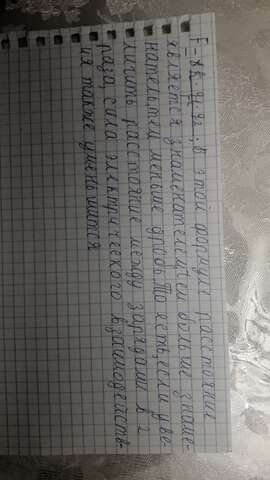 F = k q₁ q₂ ; В этой формуле расстояние
является знаменателем. Чем больше знаме-
натель, тем меньше дробь. То есть, если уве-
личить расстояние между зарядами в 2
раза, сила электрического взаимодейств-
ия также уменьшится